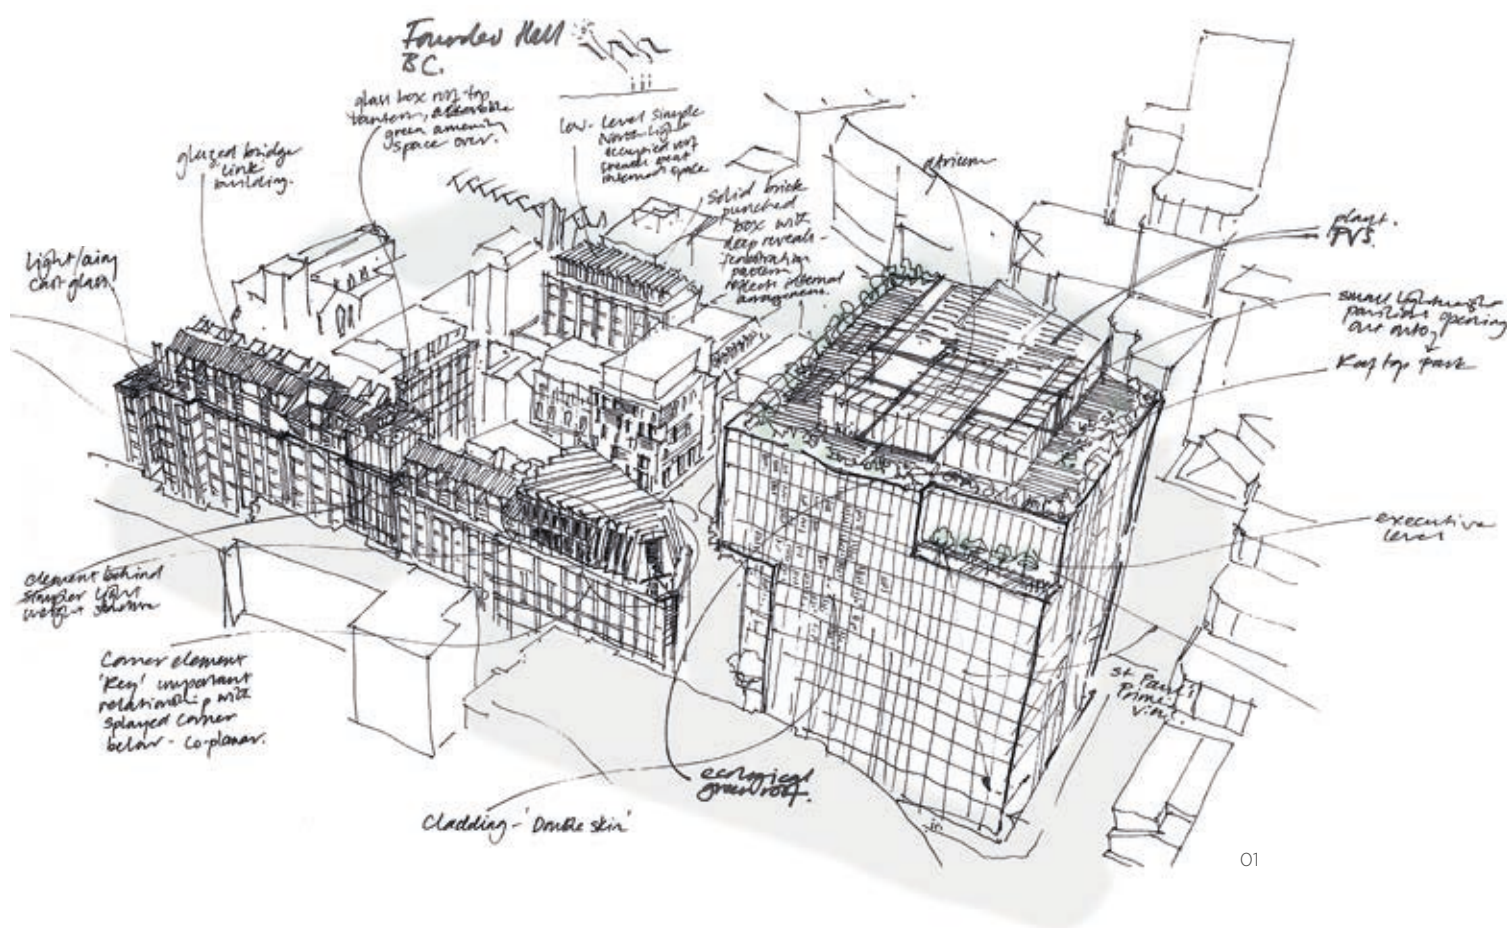 Founders Hall
BC.
glass box roof-top
lantern, accessible
green amenity
space over.
low-level simple
North-light
occupied roof
create great
internal space
glazed bridge
link
building.
Solid brick
punched
box with
deep reveals -
fenestration
pattern
reflects internal
arrangement.
atrium
plant.
PVS.
light/airy
cast glass
small lightweight
pavilions opening
out onto
Roof top park
executive
level
element behind
simpler light
weight structure
Corner element
'Key' important
relationship with
splayed corner
below - co-planar.
St Paul's
Prime
View.
ecological
green roof.
Cladding - 'Double skin'
in
01